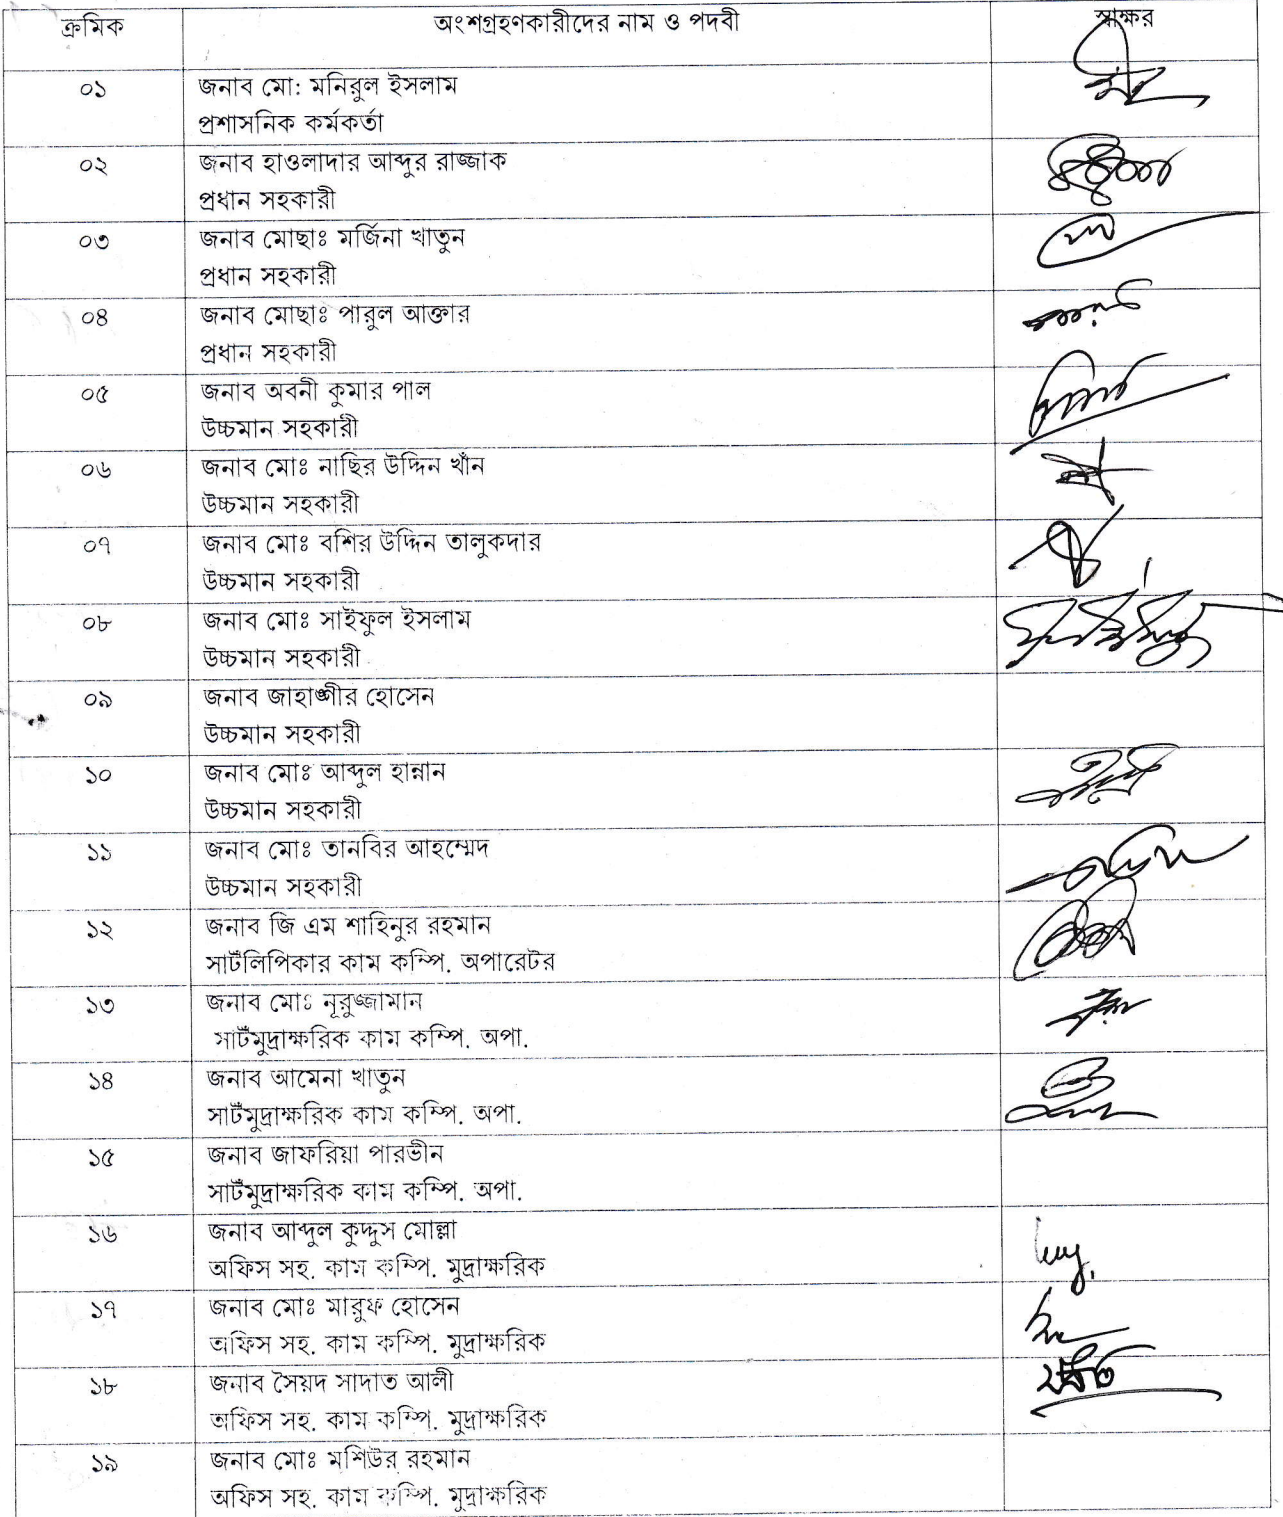 ক্রমিক অংশগ্রহণকারীদের নাম ও পদবী স্বাক্ষর
০১ জনাব মো: মনিরুল ইসলাম
প্রশাসনিক কর্মকর্তা
০২ জনাব হাওলাদার আব্দুর রাজ্জাক
প্রধান সহকারী
০৩ জনাব মোছাঃ মর্জিনা খাতুন
প্রধান সহকারী
০৪ জনাব মোছাঃ পারুল আক্তার
প্রধান সহকারী
০৫ জনাব অবনী কুমার পাল
উচ্চমান সহকারী
০৬ জনাব মোঃ নাছির উদ্দিন খাঁন
উচ্চমান সহকারী
০৭ জনাব মোঃ বশির উদ্দিন তালুকদার
উচ্চমান সহকারী
০৮ জনাব মোঃ সাইফুল ইসলাম
উচ্চমান সহকারী
০৯ জনাব জাহাঙ্গীর হোসেন
উচ্চমান সহকারী
১০ জনাব মোঃ আব্দুল হান্নান
উচ্চমান সহকারী
১১ জনাব মোঃ তানবির আহম্মেদ
উচ্চমান সহকারী
১২ জনাব জি এম শাহিনুর রহমান
সাটলিপিকার কাম কম্পি. অপারেটর
১৩ জনাব মোঃ নূরুজ্জামান
সাটঁমুদ্রাক্ষরিক কাম কম্পি. অপা.
১৪ জনাব আমেনা খাতুন
সাটঁমুদ্রাক্ষরিক কাম কম্পি. অপা.
১৫ জনাব জাফরিয়া পারভীন
সাটঁমুদ্রাক্ষরিক কাম কম্পি. অপা.
১৬ জনাব আব্দুল কুদ্দুস মোল্লা
অফিস সহ. কাম কম্পি. মুদ্রাক্ষরিক
১৭ জনাব মোঃ মারুফ হোসেন
অফিস সহ. কাম কম্পি. মুদ্রাক্ষরিক
১৮ জনাব সৈয়দ সাদাত আলী
অফিস সহ. কাম কম্পি. মুদ্রাক্ষরিক
১৯ জনাব মোঃ মশিউর রহমান
অফিস সহ. কাম কম্পি. মুদ্রাক্ষরিক